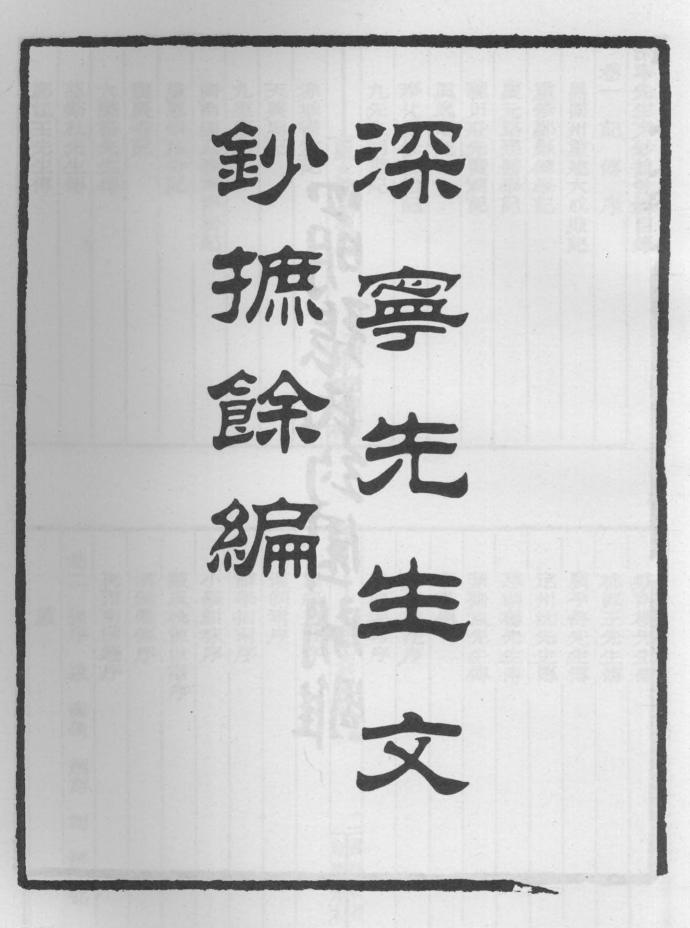 深寧先生文
鈔摭餘編